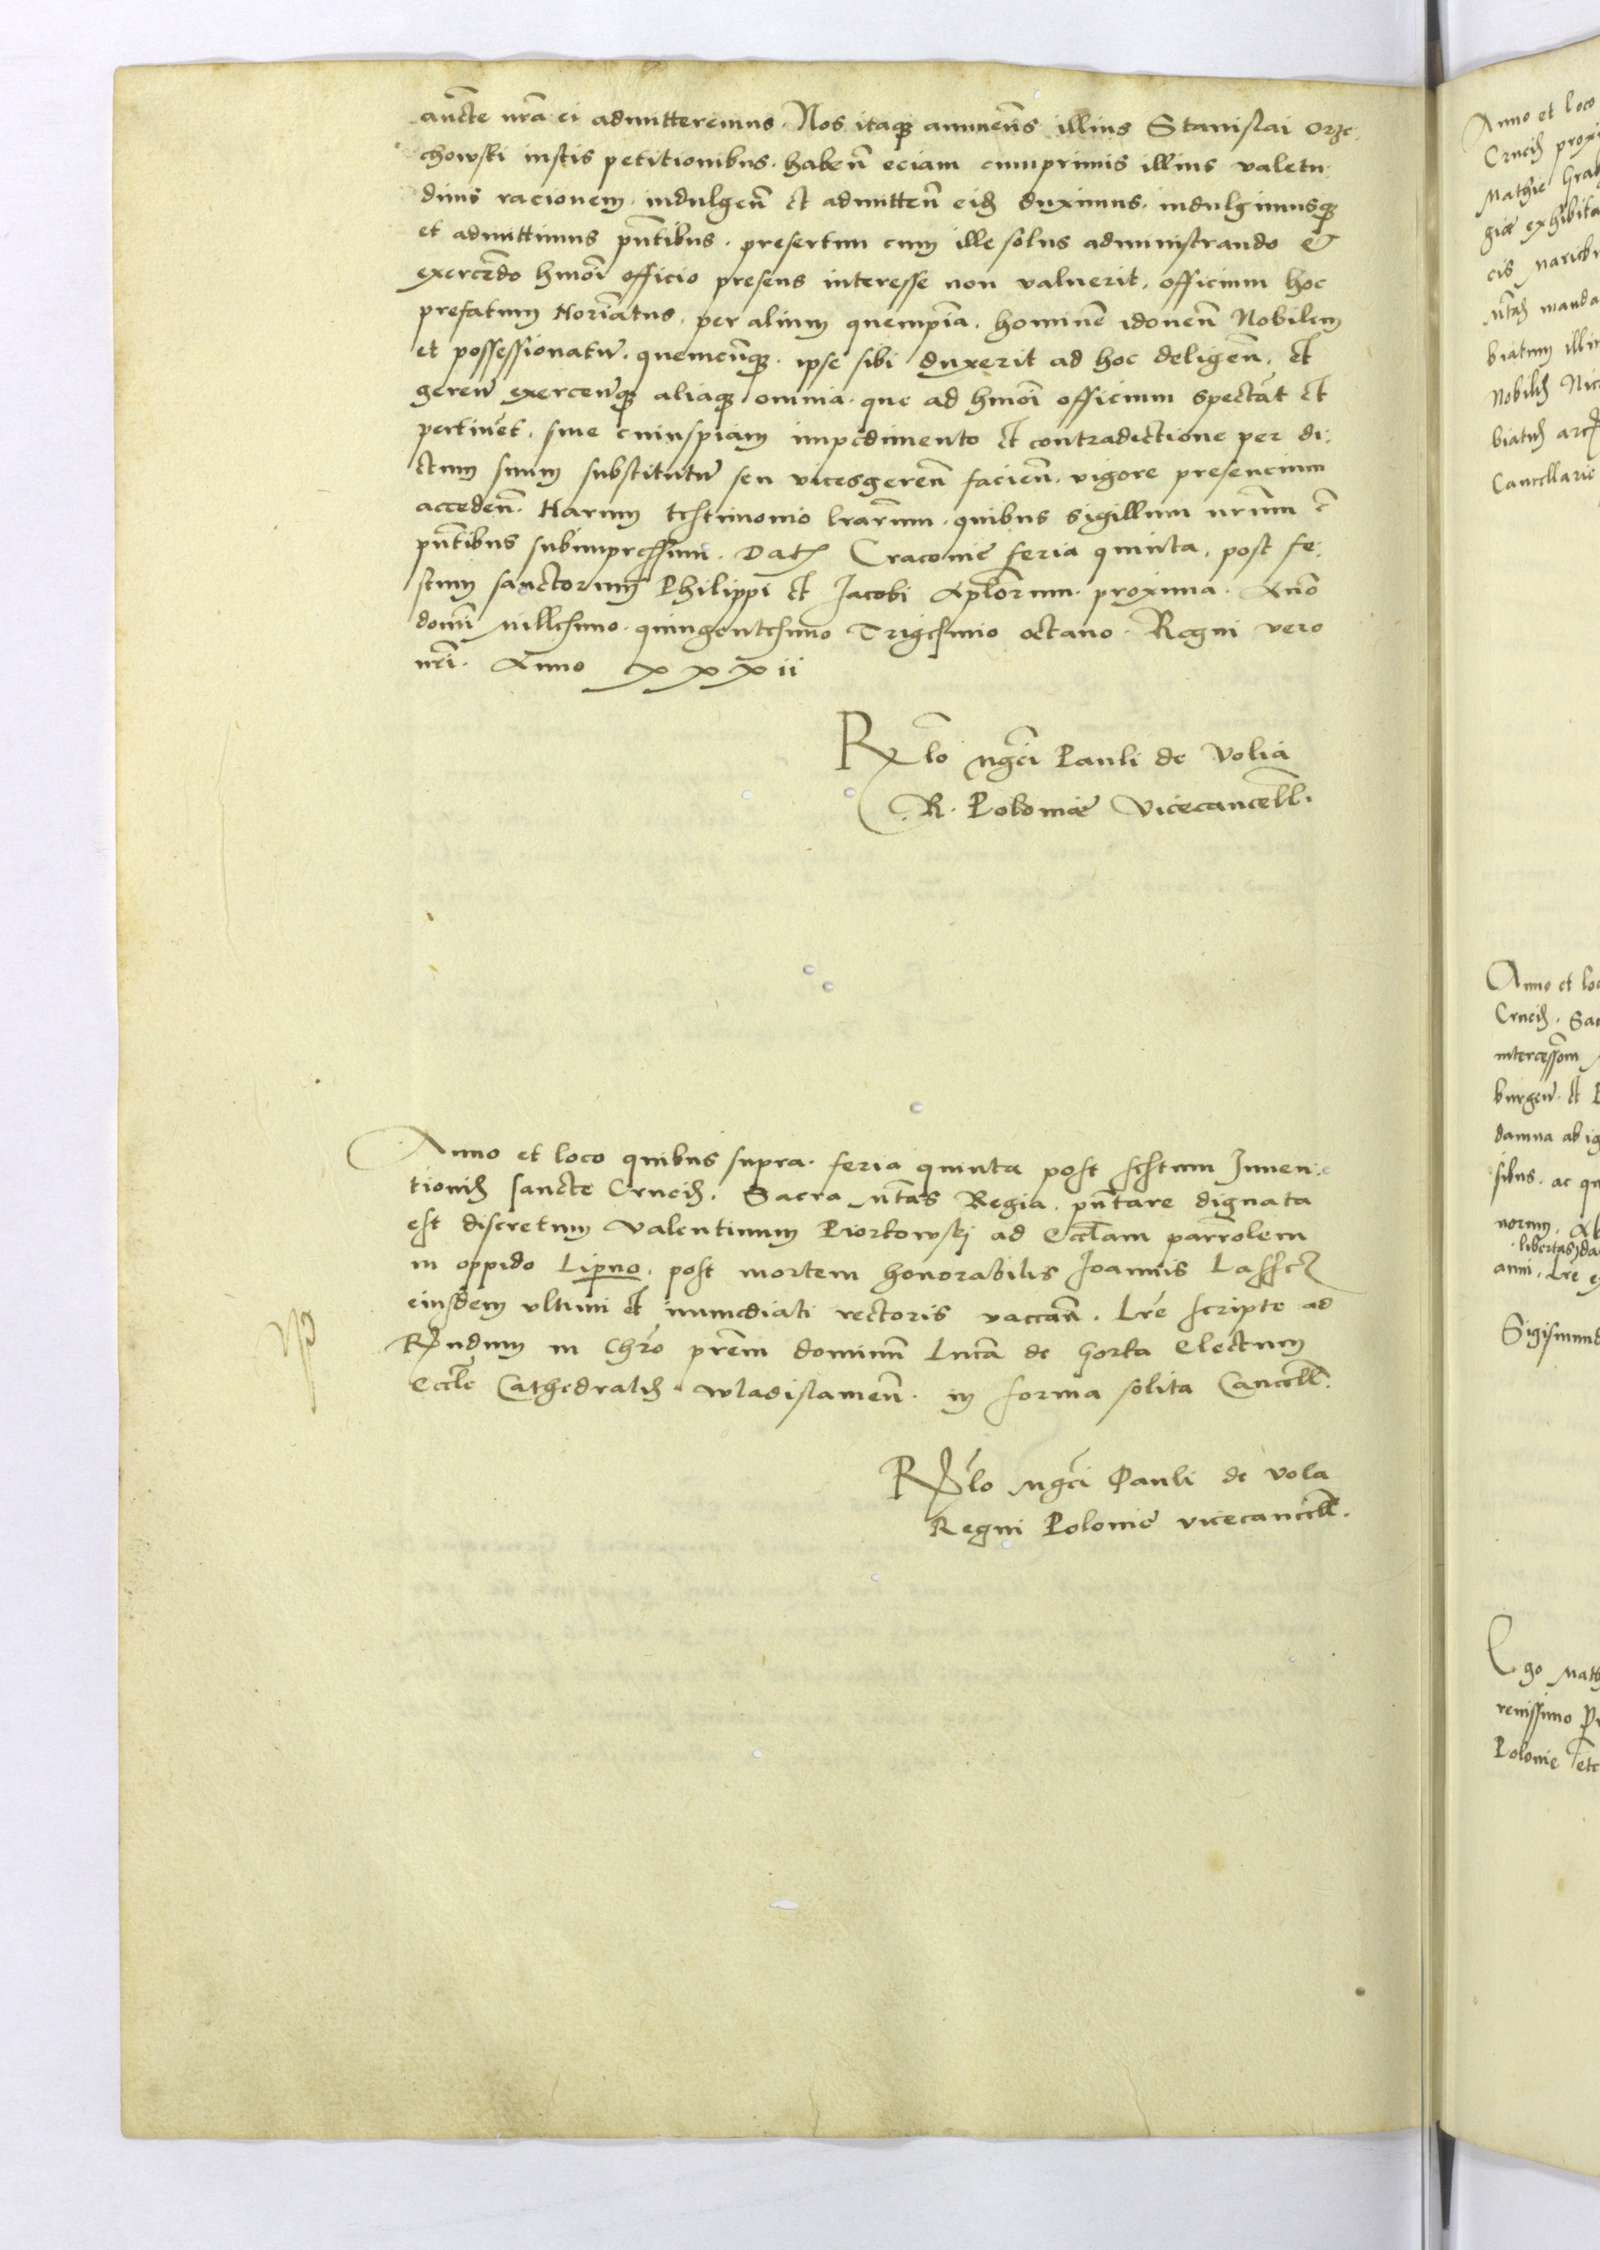 aucte nrã ei admitteremus. Nos itaq annuens illius Stanislai Orze:
chowski iustis petitionibus. habeñ eciam cumprimis illius valetu:
dinis racionem. indulgeñ et admitteñ eid duximus. indulgimusq
et admittimus pñtibus. presertim cum ille solus administrando et
exercẽdo hmõi officio presens interesse non valuerit. officium hoc
prefatum Noriãtus. per alium quempiã. hominẽ idoneũ Nobilem
et possessionatũ. quemcũq. ipse sibi duxerit ad hoc deligeñ. et
gereñ exerceñq aliaq omnia. que ad hmõi officium spectãt et
pertinẽt. sine cuiuspiam impedimento et contradictione per di:
ctum suum substitutũ seu vicesgereñ facieñ. vigore presencium
accedeñ. Harum testimonio lrarum. quibus sigillum nrum ẽ
pñtibus subimpressum. Dat Cracovie feria quinta. post fe:
stum sanctorum Philippi et Jacobi Aplorum. proxima. Año
domi millesimo. quingentesimo Trigesimo octavo. Regni vero
nri. Anno xxxii
Rlo mgci Pauli de Volia
R. Polonie Vicecancell.
Anno et loco quibus supra. feria quinta post festum Inven:
tionis sancte Crucis. Sacra Mtas Regia. pñtare dignata
est discretum Valentinum Piorkowskj ad Eccliam parrolem
in oppido Lipno. post mortem honorabilis Joannis
eiusdem ultimi et immediati rectoris vaccañ. Lre scripte ad
Rndum in Chro prem dominũ Lucã de Gorka Electum
Eccle Cathedralis. Wladislavieñ. in forma solita Cancell.
Rlo Mgci Pauli de Vola
Regni Polonie vicecancell.
Anno et loco
Crucis proxi
Mathie Grab
gie exhibita
cis
Mtas manda
biatum illi
Nobilis Nic
biatus arc
Cancellarie
Anno et loc
Crucis. Sac
intercessiom
burgeñ. et
damna ab ig
sibus. ac qu
norum. Ab
libertas da
anni. Lre e
Sigismund
Ego Math
renissimo Pr
Polonie etc